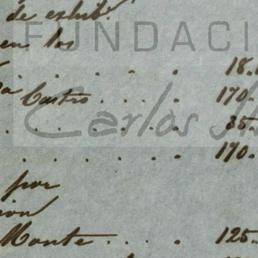 de exhib.
FUNDACI
en los
. . . . 18.
Castro . . . . 170.
Carlos
. . . . . 35.
. . . . . 170.
por
Monte . . . . 125.